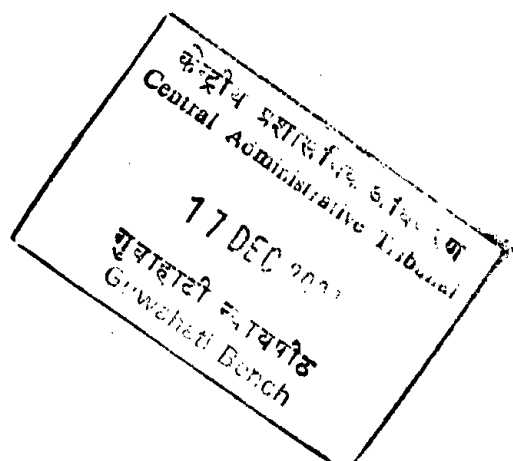 केन्द्रीय प्रशासनिक
Central Administrative Tribunal
17 DEC
गुवाहाटी न्यायपीठ
Guwahati Bench